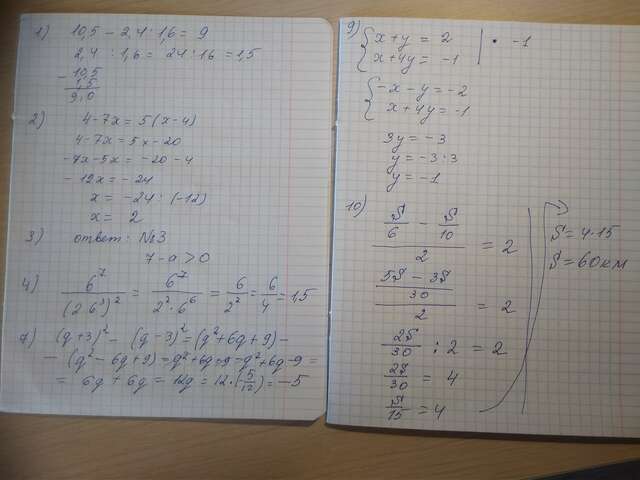 1) 10,5 - 2,4 : 1,6 = 9
2,4 : 1,6 = 24 : 16 = 1,5
- 10,5
1,5
9,0
2) 4 - 7x = 5(x - 4)
4 - 7x = 5x - 20
-7x - 5x = -20 - 4
-12x = -24
x = -24 : (-12)
x = 2
3) ответ: №3
7 - a > 0
4) 6^7 / (2·6^3)^2 = 6^7 / 2^2·6^6 = 6 / 2^2 = 6 / 4 = 1,5
7) (g+3)^2 - (g-3)^2 = (g^2+6g+9) -
- (g^2 - 6g + 9) = g^2+6g+9 - g^2+6g-9 =
= 6g + 6g = 12g = 12·(-5/12) = -5
9) { x + y = 2 | · -1
x + 4y = -1
{ -x - y = -2
x + 4y = -1
3y = -3
y = -3 : 3
y = -1
10) S/6 - S/10 / 2 = 2
5S - 3S / 30 / 2 = 2
2S/30 : 2 = 2
2S/30 = 4
S/15 = 4
S = 4·15
S = 60км